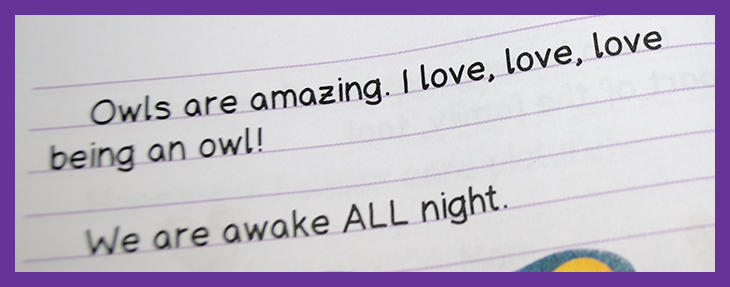 Owls are amazing. I love, love, love
being an owl!
We are awake ALL night.